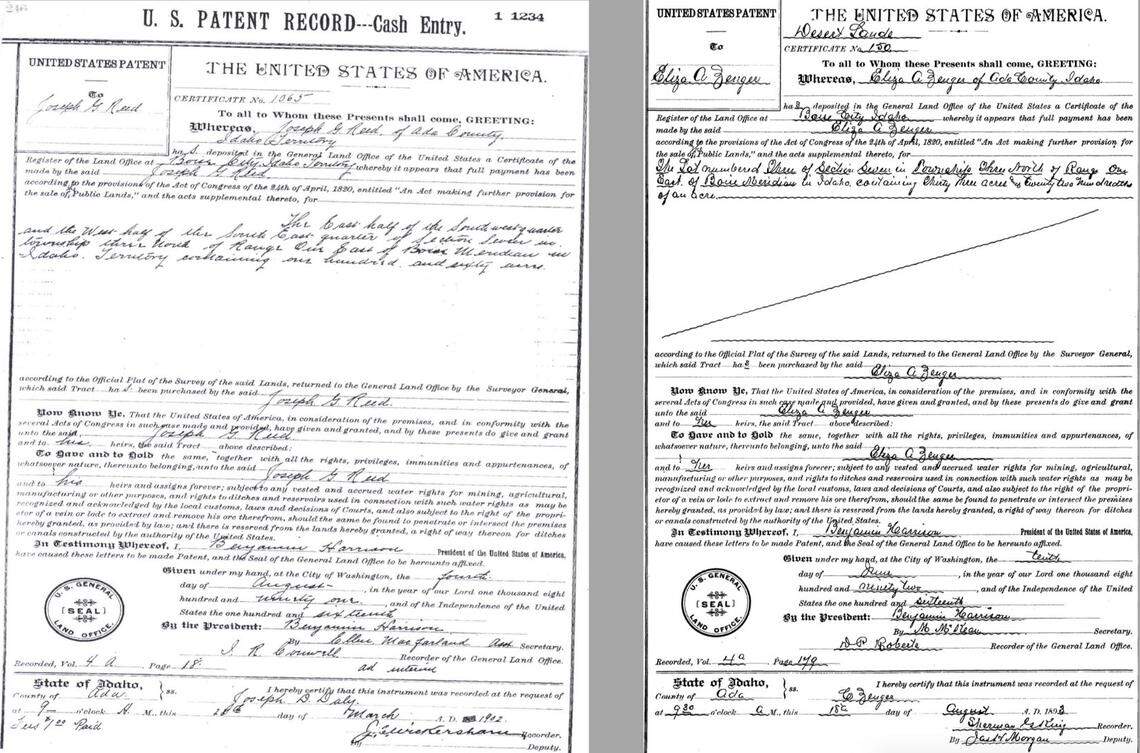 U. S. PATENT RECORD---Cash Entry.
1 1234
UNITED STATES PATENT
To
Joseph G Reed
THE UNITED STATES OF AMERICA.
CERTIFICATE No. 1065
To all to Whom these Presents shall come, GREETING:
Whereas, Joseph G Reed, of Ada County,
Idaho Territory
has deposited in the General Land Office of the United States a Certificate of the
Register of the Land Office at Boise City, Idaho Territory whereby it appears that full payment has been
made by the said Joseph G. Reed
according to the provisions of the Act of Congress of the 24th of April, 1820, entitled "An Act making further provision for
the sale of Public Lands," and the acts supplemental thereto, for
The East half of the Southwest quarter
and the West half of the South East quarter of Section Seven in
township three North of Range One East of Boise Meridian in
Idaho. Territory containing one hundred and sixty acres.
according to the Official Plat of the Survey of the said Lands, returned to the General Land Office by the Surveyor General,
which said Tract has been purchased by the said
Joseph G Reed.
Now Know Ye, That the United States of America, in consideration of the premises, and in conformity with the
several Acts of Congress in such case made and provided, have given and granted, and by these presents do give and grant
unto the said Joseph G. Reed
and to his heirs, the said Tract above described:
To Have and to Hold the same, together with all the rights, privileges, immunities and appurtenances, of
whatsoever nature, thereunto belonging, unto the said Joseph G Reed
and to his heirs and assigns forever; subject to any vested and accrued water rights for mining, agricultural,
manufacturing or other purposes, and rights to ditches and reservoirs used in connection with such water rights as may be
recognized and acknowledged by the local customs, laws and decisions of Courts, and also subject to the right of the propri-
etor of a vein or lode to extract and remove his ore therefrom, should the same be found to penetrate or intersect the premises
hereby granted, as provided by law; and there is reserved from the lands hereby granted, a right of way thereon for ditches
or canals constructed by the authority of the United States.
In Testimony Whereof, I, Benjamin Harrison President of the United States of America,
have caused these letters to be made Patent, and the Seal of the General Land Office to be hereunto affixed.
Given under my hand, at the City of Washington, the fourth
day of August, in the year of our Lord one thousand eight
hundred and ninety one, and of the Independence of the United
States the one hundred and sixteenth
U. S. GENERAL
[SEAL]
LAND OFFICE.
By the President: Benjamin Harrison
By Ellen Macfarland Asst Secretary.
I. R. Conwell Recorder of the General Land Office.
ad interim
Recorded, Vol. 4 A Page 18.
State of Idaho,
County of Ada
ss.
I hereby certify that this instrument was recorded at the request of
Joseph D. Daly.
at 9- o'clock A M., this 28th day of March A. D. 1902.
Fees Paid
Recorder.
By Deputy.
UNITED STATES PATENT
To
Eliza A Zenger
THE UNITED STATES OF AMERICA.
Desert Lands
CERTIFICATE No 150
To all to Whom these Presents shall come, GREETING:
Whereas, Eliza A Zenger of Ada County, Idaho
has deposited in the General Land Office of the United States a Certificate of the
Register of the Land Office at Boise City Idaho whereby it appears that full payment has been
made by the said Eliza A Zenger
according to the provisions of the Act of Congress of the 24th of April, 1820, entitled "An Act making further provision for
the sale of Public Lands," and the acts supplemental thereto, for
The Lot numbered Three of Section Seven in Township Three North of Range One
East of Boise Meridian in Idaho, containing Thirty three acres & Twenty two hundredths
of an acre
according to the Official Plat of the Survey of the said Lands, returned to the General Land Office by the Surveyor General,
which said Tract has been purchased by the said
Eliza A Zenger
Now Know Ye, That the United States of America, in consideration of the premises, and in conformity with the
several Acts of Congress in such case made and provided, have given and granted, and by these presents do give and grant
unto the said Eliza A Zenger
and to her heirs, the said Tract above described:
To Have and to Hold the same, together with all the rights, privileges, immunities and appurtenances, of
whatsoever nature, thereunto belonging, unto the said
Eliza A Zenger
and to her heirs and assigns forever; subject to any vested and accrued water rights for mining, agricultural,
manufacturing or other purposes, and rights to ditches and reservoirs used in connection with such water rights as may be
recognized and acknowledged by the local customs, laws and decisions of Courts, and also subject to the right of the propri-
etor of a vein or lode to extract and remove his ore therefrom, should the same be found to penetrate or intersect the premises
hereby granted, as provided by law; and there is reserved from the lands hereby granted, a right of way thereon for ditches
or canals constructed by the authority of the United States.
In Testimony Whereof, I, Benjamin Harrison President of the United States of America,
have caused these letters to be made Patent, and the Seal of the General Land Office to be hereunto affixed.
Given under my hand, at the City of Washington, the tenth
day of June, in the year of our Lord one thousand eight
hundred and ninety two, and of the Independence of the United
States the one hundred and sixteenth
U. S. GENERAL
[SEAL]
LAND OFFICE.
By the President: Benjamin Harrison
By M. McKean Secretary.
D P Roberts Recorder of the General Land Office.
Recorded, Vol. 4A Page 179
State of Idaho,
County of Ada
ss.
I hereby certify that this instrument was recorded at the request of
E Zenger
at 9 30 o'clock A M., this 18th day of August A. D. 1893
Sherman Recorder.
By Jas H Morgan Deputy.